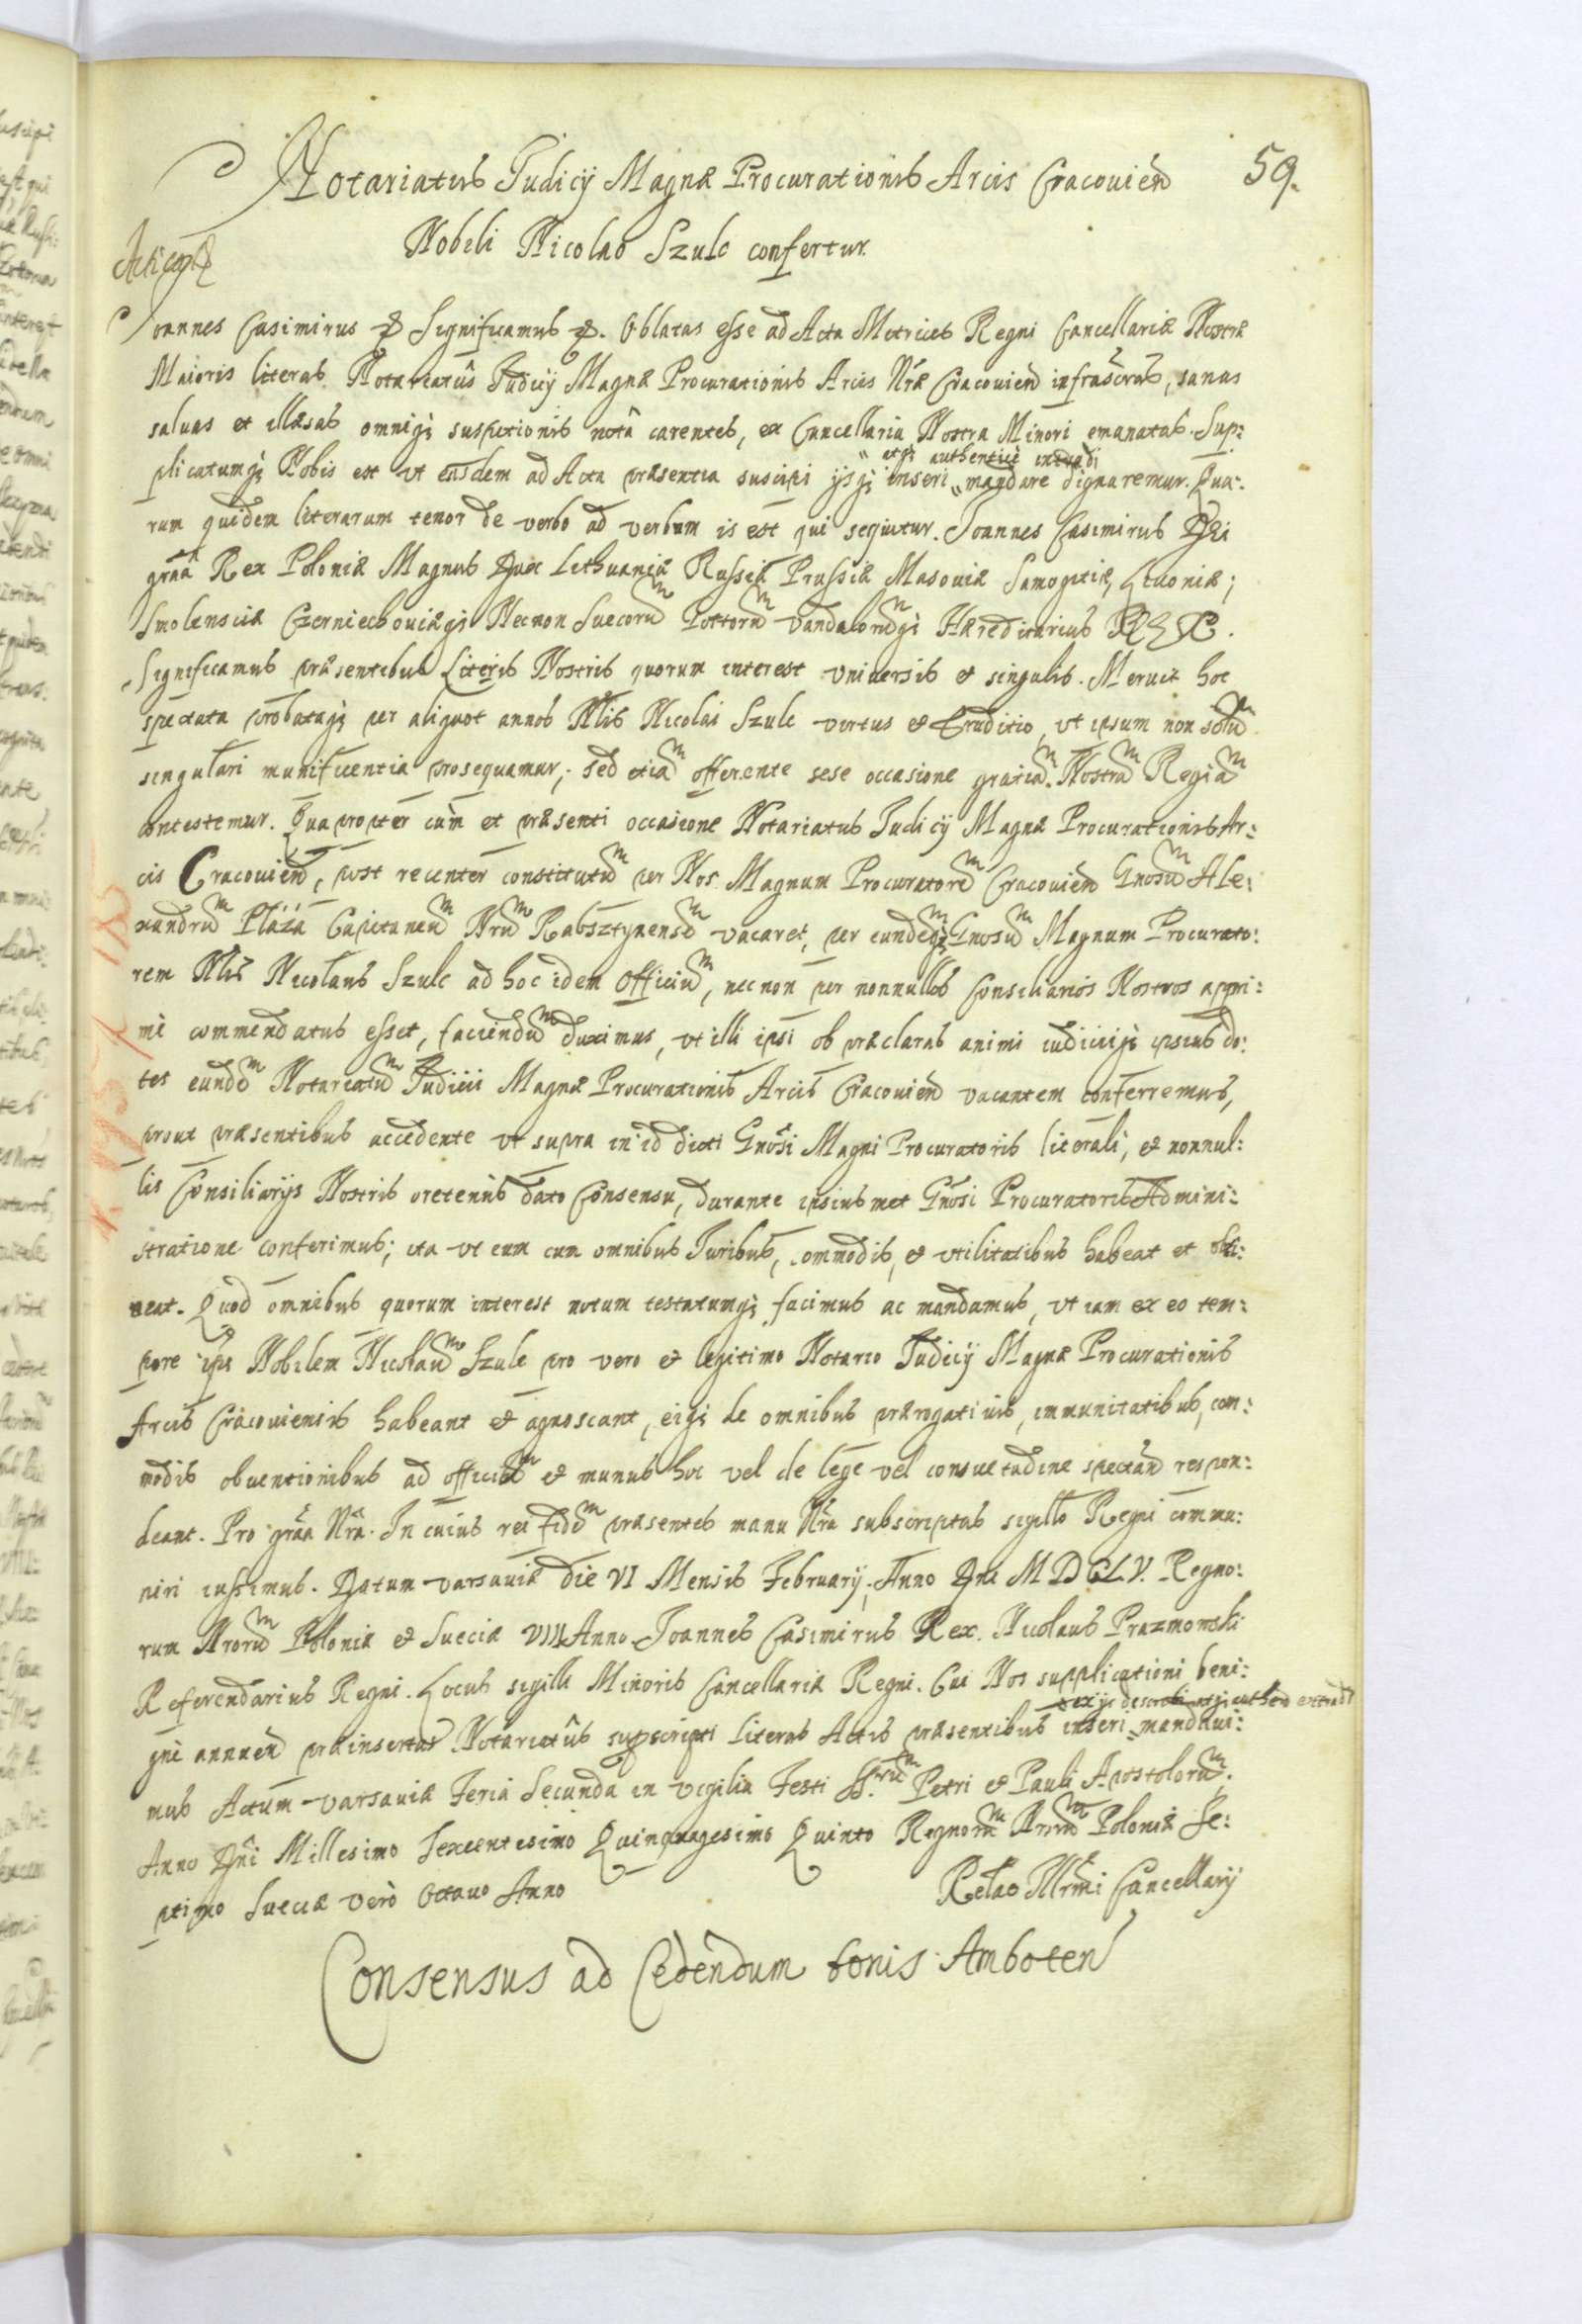 59.
Notariatus Judicij Magnæ Procurationis Arcis Cracouien
Nobili Nicolao Szulc confertur.
Joannes Casimirus Significamus. Oblatas esse ad Acta Metrices Regni Cancellariæ Nostræ
Maioris literas Notariatûs Judicij Magnæ Procurationis Arcis Nræ Cracouien infrascras, sanas
saluas et illæsas omniq; suspitionis notâ carentes, ex Cancellaria Nostra Minori emanatas. Sup:
etq; authenticè extradi
plicatumq; Nobis est vt easdem ad Acta præsentia suscipi ijsq; inseri mandare dignaremur. Qua:
rum quidem literarum tenor de verbo ad verbum is est qui sequitur. Joannes Casimirus Dei
graa Rex Poloniæ Magnus Dux Lithuaniæ Russiæ Prussiæ Masouiæ Samogitiæ, Liuoniæ;
Smolensciæ Czerniechouiæq; Necnon Suecorum Gottorum Vandalorumq; Hæreditarius REX.
Significamus præsentibus Literis Nostris quorum interest vniuersis et singulis. Meruit hoc
spectata probataq; per aliquot annos Nlis Nicolai Szulc virtus et Eruditio, vt ipsum non solum
singulari munificentia prosequamur; sed etiam offerente sese occasione gratiam Nostram Regiam
contestemur. Quapropter cùm et præsenti occasione Notariatus Judicij Magnæ Procurationis Ar:
cis Cracouien, post recenter constitutum per Nos Magnum Procuratorem Cracouien Gnosum Ale:
xandrum Płaza Capitaneum Nrum Rabsztynensem vacaret, per eundemq; Gnosum Magnum Procurato:
rem Nlis Nicolaus Szulc ad hoc idem Officium, necnon per nonnullos Consiliarios Nostros appri:
mè commendatus esset, faciendum duximus, vt illi ipsi ob præclaras animi iudicijq; ipsius do:
tes eundem Notariatum Judicii Magnæ Procurationis Arcis Cracouien vacantem conferremus,
prout præsentibus accedente vt supra in id dicti Gnosi Magni Procuratoris literali, et nonnul:
lis Consiliarijs Nostris oretenùs dato Consensu, durante ipsiusmet Gnosi Procuratoris Admini:
stratione conferimus; ita vt eum cum omnibus Juribus, commodis, et vtilitatibus habeat et obti:
neat. Quod omnibus quorum interest notum testatumq; facimus ac mandamus, vt iam ex eo tem:
pore Nobilem Nicolaum Szulc pro vero et legitimo Notario Judicij Magnæ Procurationis
Arcis Cracouiensis habeant et agnoscant, eiq; de omnibus prærogatiuis, immunitatibus, com:
modis obuentionibus ad officium et munus hoc vel de lege vel consuetudine spectan respon:
deant. Pro graa Nra. In cuius rei fidem præsentes manu Nra subscriptas sigillo Regni commu:
niri iussimus. Datum Varsauiæ die VI Mensis February, Anno Dni MDCLV. Regno:
rum Nrorum Poloniæ et Sueciæ VIII Anno Joannes Casimirus Rex. Nicolaus Prazmowski
Referendarius Regni. Locus sigilli Minoris Cancellariæ Regni. Cui Nos supplicationi beni:
gnè annuen præinsertas Notariatûs supscripti literas Actis præsentibus inseri mandaui:
mus Actum Varsauiæ Feria Secunda in Vigilia Festi SS.rum Petri et Pauli Apostolorum.
Anno Dni Millesimo Sexcentesimo Quinquagesimo Quinto Regnorum Nrorum Poloniæ Se:
ptimo Sueciæ verò Octauo Anno
Relao Illrmi Cancellarij
Consensus ad Cedendum bonis Amboten